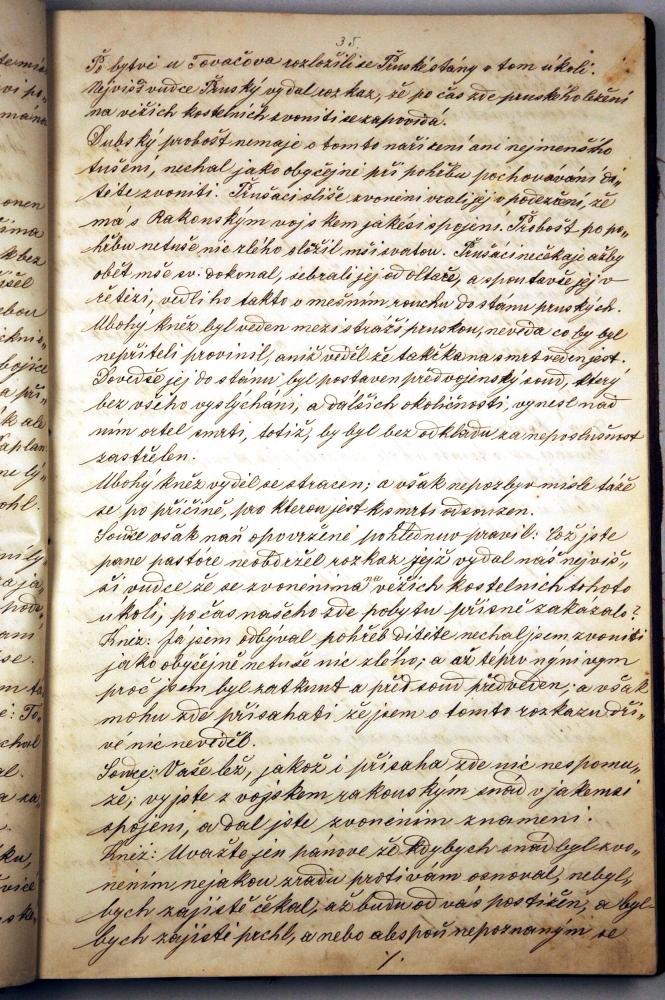 35.
Po bytvě u Tovačova rozložili se Pruské stány v tom úkolí.
Nejvišší vudce Pruský vydal rozkaz, že po čas zde pruského ležení
na věžích kostelních zvoniti se zapovídá.
Dubský probošt nemaje o tomto nařízení ani nejmenšího
tušení, nechal jako obyčejně při pohřbu pochovávání dí„
těte zvoniti. Prušáci slíše zvonění vzali jej v podezření, že
má s Rakouským vojskem jakési spojení. Probošt po po„
hřbu netuše nic zlého sloužil mši svatou. Prušáci nečekaje ažby
oběť mše sv. dokonal, sebrali jej od oltaře, a spoutavše jej v
řetězi, vedli ho takto v mešním rouchu do stánu pruských.
Ubohý kněz byl veden mezi stráží pruskou, nevěda co by byl
nepříteli provinil, aniž věděl že takřka na smrt veden jest.
Dovedše jej do stánu byl postaven před vojenský soud, který
bez všeho vyslýchání, a dalších okoličností, vynesl nad
ním ortel smrti, totiž, by byl bez odkladu za neposlušnost
zastřelen.
Ubohý kněz vyděl se stracen; a však nepozbyv misle táže
se po příčině, pro kterou jest k smrti odsouzen.
Soudce však naň opovrženě pohlédnuv pravil: Což jste
pane pastóre neobdržel rozkaz jejž vydal náš nejviš„
ší vudce že se zvoněníma na věžích kostelních tohoto
ukolí, po čas našeho zde pobytu přísně zakazalo?
Kněz: Ja jsem odbýval pohřeb dítěte nechal jsem zvoniti
jako obyčejně netuše nic zlého; a až teprv nýní vym
proč jsem byl zatknut a před soud předveden; a však
mohu zde přísahati že jsem o tomto rozkazu dří„
vě nic nevěděl.
Soudce: Vaše lež, jakož i přísaha zde nic nespomu„
že; vy jste z vojskem rakouským snad v jakemsi
spojení, a dal jste zvoněním znamení.
Kněz: Uvažte jen pánové že kdybych snad byl zvo„
něním nejakou zradu proti vám osnoval, nebyl„
bych zajistě čekal, až budu od vás postižen, a byl„
bych zajisté prchl, a nebo abspoň nepoznaným se
./.